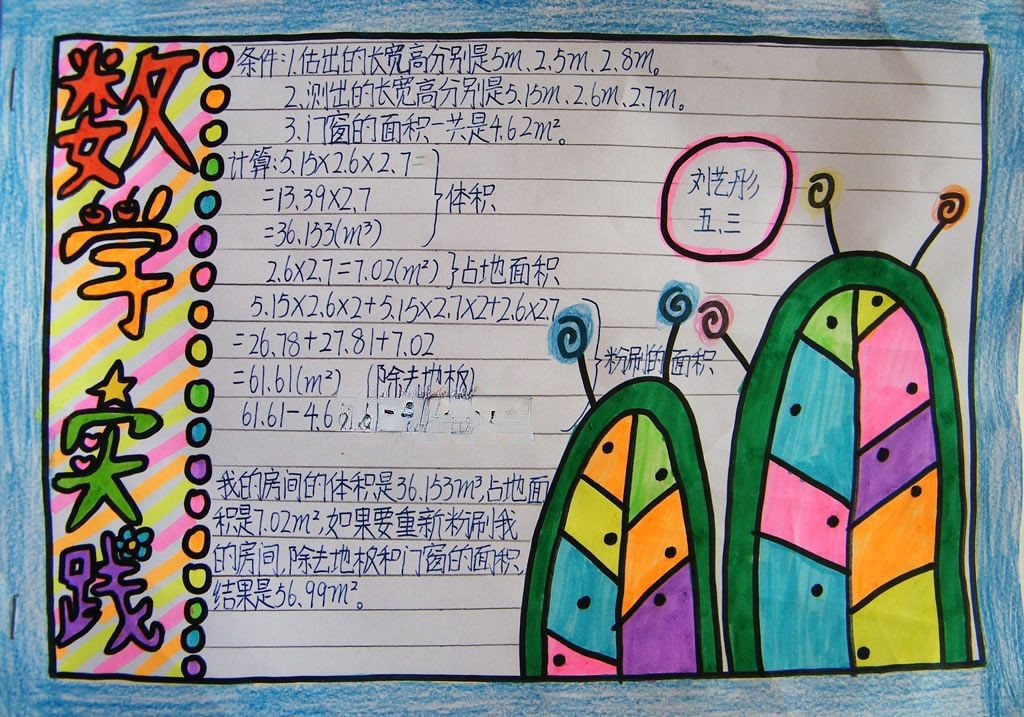 数学实践
条件:1.估出的长宽高分别是5m、2.5m、2.8m。
2.测出的长宽高分别是5.15m、2.6m、2.7m。
3.门窗的面积一共是4.62m²。
计算:5.15×2.6×2.7=
=13.39×2.7
=36.153(m³)
体积
刘艺彤
五、三
2.6×2.7=7.02(m²)}占地面积
5.15×2.6×2+5.15×2.7×2+2.6×2.7
=26.78+27.81+7.02
=61.61(m²) (除去地板)
61.61-4.6
粉刷的面积
我的房间的体积是36.153m³,占地面
积是7.02m².如果要重新粉刷我
的房间,除去地板和门窗的面积,
结果是56.99m²。